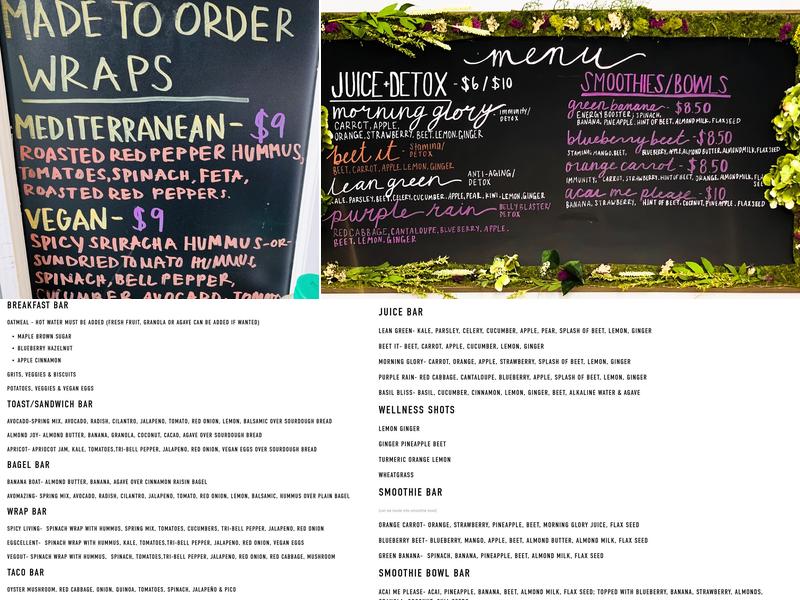 MADE TO ORDER
WRAPS
MEDITERRANEAN- $9
ROASTED RED PEPPER HUMMUS,
TOMATOES, SPINACH, FETA,
ROASTED RED PEPPERS.
VEGAN- $9
SPICY SRIRACHA HUMMUS -OR-
SUNDRIED TOMATO HUMMUS,
SPINACH, BELL PEPPER,
CUCUMBER, AVOCADO, TOMATO
menu
JUICE+DETOX - $6/$10
morning glory- immunity/
DETOX
CARROT, APPLE,
ORANGE, STRAWBERRY, BEET, LEMON, GINGER
beet it - STAMINA/
DETOX
BEET, CARROT, APPLE, LEMON, GINGER
lean green - ANTI-AGING/
DETOX
KALE, PARSLEY, BEET, CELERY, CUCUMBER, APPLE, PEAR, KIWI, LEMON, GINGER
purple rain - BELLY BLASTER/
DETOX
RED CABBAGE, CANTALOUPE, BLUEBERRY, APPLE,
BEET, LEMON, GINGER
SMOOTHIES/BOWLS
green banana - $8.50
ENERGY BOOSTER, SPINACH,
BANANA, PINEAPPLE, HINT OF BEET, ALMOND MILK, FLAX SEED
blueberry beet - $8.50
STAMINA, MANGO, BEET, BLUEBERRY, APPLE, ALMOND BUTTER, ALMOND MILK, FLAX SEED
orange carrot - $8.50
IMMUNITY, CARROT, STRAWBERRY, HINT OF BEET, ORANGE, ALMOND MILK, FLAX
SEED
acai me please - $10
BANANA, STRAWBERRY, HINT OF BEET, COCONUT, PINEAPPLE, FLAX SEED
BREAKFAST BAR
OATMEAL - HOT WATER MUST BE ADDED (FRESH FRUIT, GRANOLA OR AGAVE CAN BE ADDED IF WANTED)
• MAPLE BROWN SUGAR
• BLUEBERRY HAZELNUT
• APPLE CINNAMON
GRITS, VEGGIES & BISCUITS
POTATOES, VEGGIES & VEGAN EGGS
TOAST/SANDWICH BAR
AVOCADO-SPRING MIX, AVOCADO, RADISH, CILANTRO, JALAPENO, TOMATO, RED ONION, LEMON, BALSAMIC OVER SOURDOUGH BREAD
ALMOND JOY- ALMOND BUTTER, BANANA, GRANOLA, COCONUT, CACAO, AGAVE OVER SOURDOUGH BREAD
APRICOT- APRICIOT JAM, KALE, TOMATOES,TRI-BELL PEPPER, JALAPENO, RED ONION, VEGAN EGGS OVER SOURDOUGH BREAD
BAGEL BAR
BANANA BOAT- ALMOND BUTTER, BANANA, AGAVE OVER CINNAMON RAISIN BAGEL
AVOMAZING- SPRING MIX, AVOCADO, RADISH, CILANTRO, JALAPENO, TOMATO, RED ONION, LEMON, BALSAMIC, HUMMUS OVER PLAIN BAGEL
WRAP BAR
SPICY LIVING- SPINACH WRAP WITH HUMMUS, SPRING MIX, TOMATOES, CUCUMBERS, TRI-BELL PEPPER, JALAPENO, RED ONION
EGGCELLENT- SPINACH WRAP WITH HUMMUS, KALE, TOMATOES,TRI-BELL PEPPER, JALAPENO, RED ONION, VEGAN EGGS
VEGOUT- SPINACH WRAP WITH HUMMUS, SPINACH, TOMATOES,TRI-BELL PEPPER, JALAPENO, RED ONION, RED CABBAGE, MUSHROOM
TACO BAR
OYSTER MUSHROOM, RED CABBAGE, ONION, QUINOA, TOMATOES, SPINACH, JALAPEÑO & PICO
JUICE BAR
LEAN GREEN- KALE, PARSLEY, CELERY, CUCUMBER, APPLE, PEAR, SPLASH OF BEET, LEMON, GINGER
BEET IT- BEET, CARROT, APPLE, CUCUMBER, LEMON, GINGER
MORNING GLORY- CARROT, ORANGE, APPLE, STRAWBERRY, SPLASH OF BEET, LEMON, GINGER
PURPLE RAIN- RED CABBAGE, CANTALOUPE, BLUEBERRY, APPLE, SPLASH OF BEET, LEMON, GINGER
BASIL BLISS- BASIL, CUCUMBER, CINNAMON, LEMON, GINGER, BEET, ALKALINE WATER & AGAVE
WELLNESS SHOTS
LEMON GINGER
GINGER PINEAPPLE BEET
TURMERIC ORANGE LEMON
WHEATGRASS
SMOOTHIE BAR
(can be made into smoothie bowl)
ORANGE CARROT- ORANGE, STRAWBERRY, PINEAPPLE, BEET, MORNING GLORY JUICE, FLAX SEED
BLUEBERRY BEET- BLUEBERRY, MANGO, APPLE, BEET, ALMOND BUTTER, ALMOND MILK, FLAX SEED
GREEN BANANA- SPINACH, BANANA, PINEAPPLE, BEET, ALMOND MILK, FLAX SEED
SMOOTHIE BOWL BAR
ACAI ME PLEASE- ACAI, PINEAPPLE, BANANA, BEET, ALMOND MILK, FLAX SEED; TOPPED WITH BLUEBERRY, BANANA, STRAWBERRY, ALMONDS,